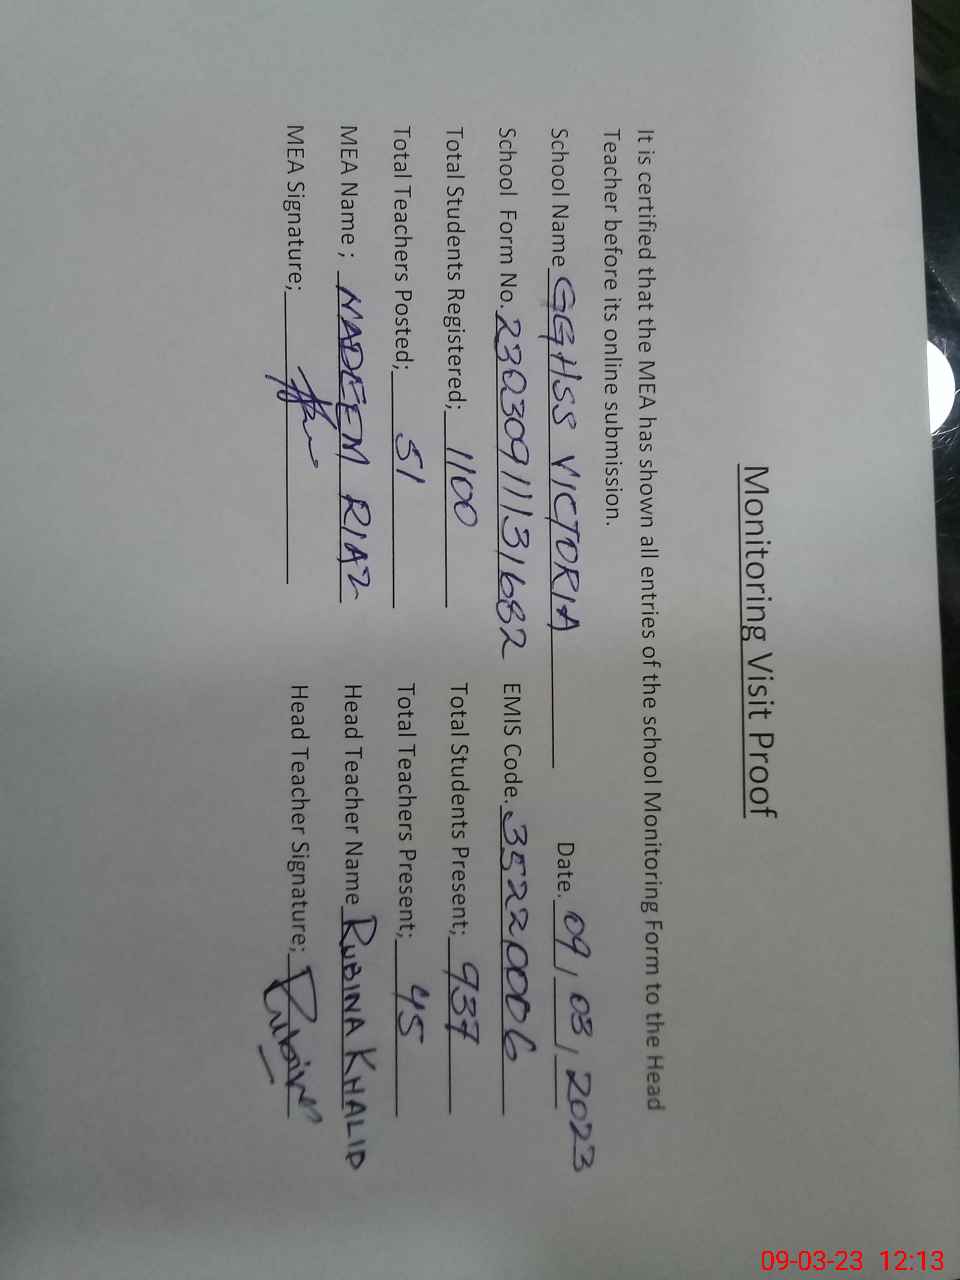 Monitoring Visit Proof
It is certified that the MEA has shown all entries of the school Monitoring Form to the Head
Teacher before its online submission.
School Name GGHSS VICTORIA Date. 09/03/2023
School Form No. 2303091131682 EMIS Code. 35220006
Total Students Registered; 1100 Total Students Present; 937
Total Teachers Posted; 51 Total Teachers Present; 45
MEA Name; NADEEM RIAZ Head Teacher Name RUBINA KHALID
MEA Signature; Head Teacher Signature; Rubina
09-03-23 12:13